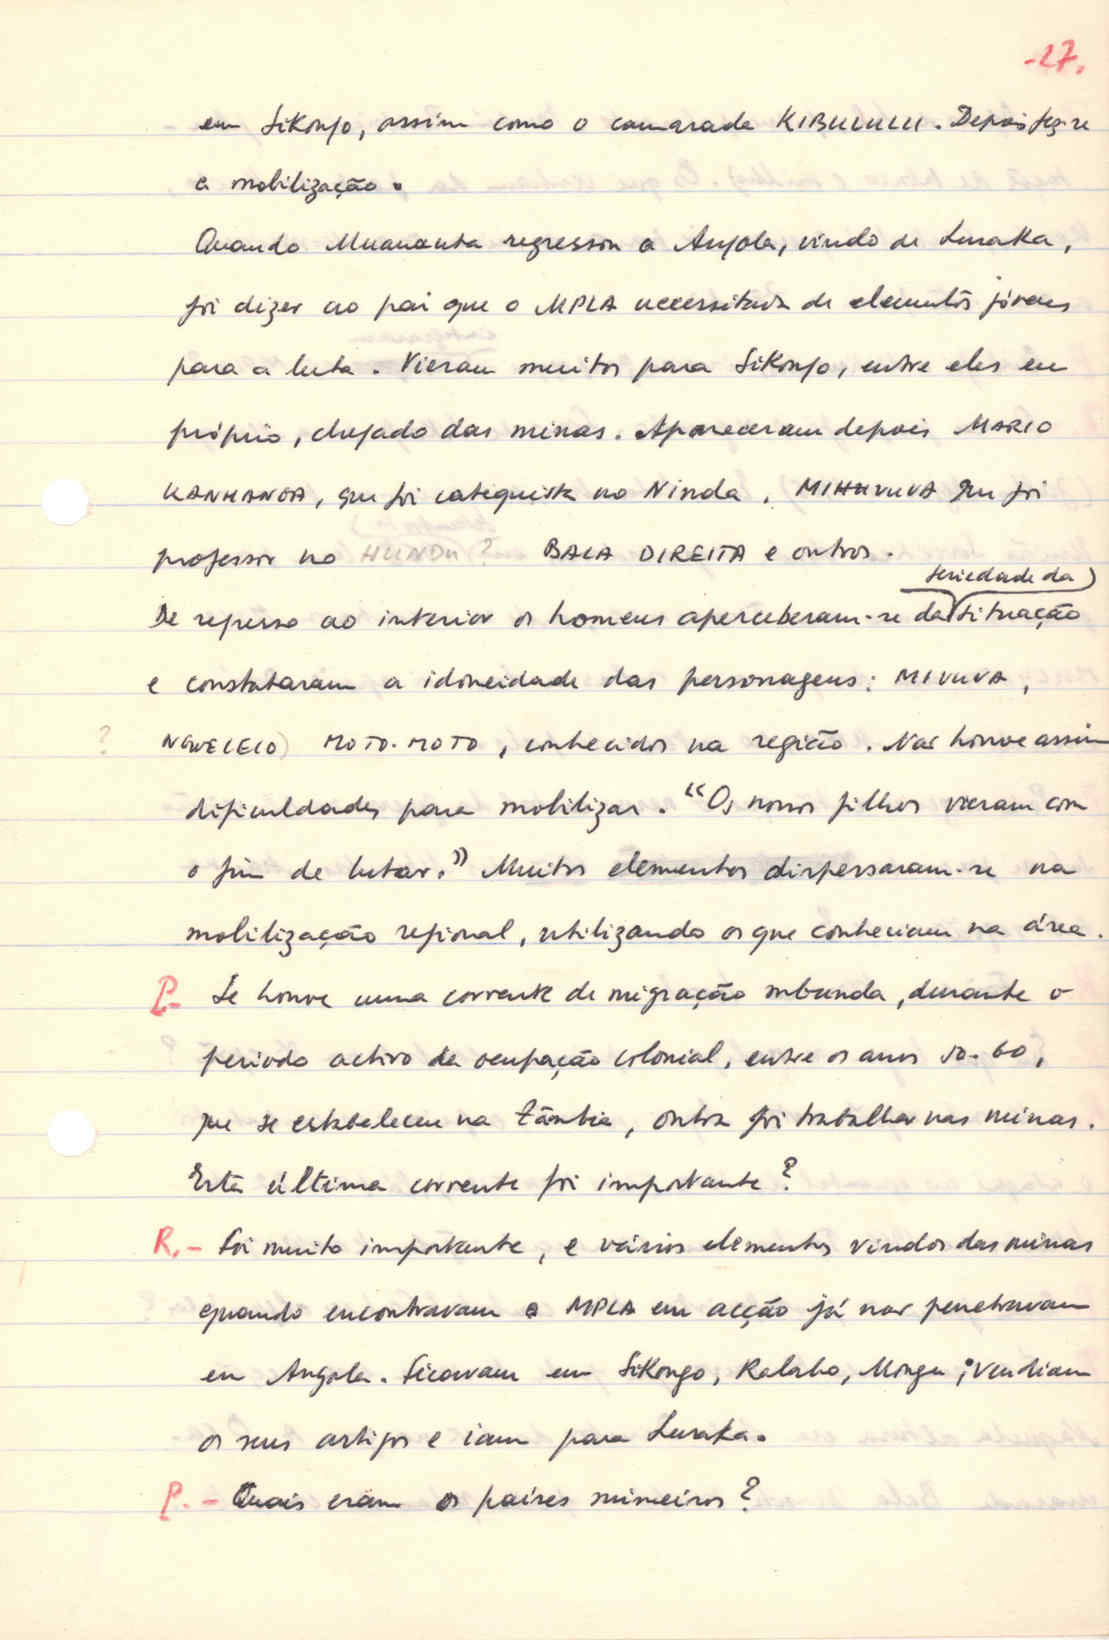 -27.
em Sikongo, assim como o camarada KIBULULU. Depois fez-se
a mobilização.
Quando Muananta regressou a Angola, vindo de Lusaka,
foi dizer ao pai que o MPLA necessitava de elementos jovens
para a luta. Vieram muitos para Sikongo, entre eles eu
próprio, chegado das minas. Apareceram depois MARIO
KANHANGA, que foi catequista no Ninda, que foi
professor no HUNDU? BALA DIREITA e outros.
seriedade da)
De regresso ao interior os homens aperceberam-se da situação
e constataram a idoneidade das personagens: MIVUVA,
? NGWELELO) MOTO-MOTO, conhecidos na região. Não houve assim
dificuldades para mobilizar. "Os nossos filhos vieram com
o fim de lutar." Muitos elementos dispersaram-se na
mobilização regional, utilizando os que conheciam na área.
P.- Se houve uma corrente de migração mbunda, durante o
período activo da ocupação colonial, entre os anos 50-60,
que se estabeleceu na Zâmbia, outra foi trabalhar nas minas.
Esta última corrente foi importante?
R.- Foi muito importante, e vários elementos vindos das minas
quando encontravam o MPLA em acção já não penetravam
em Angola. Ficavam em Sikongo, Kalabo, Mongu; vendiam
os seus artigos e iam para Lusaka.
P.- Quais eram os países mineiros?